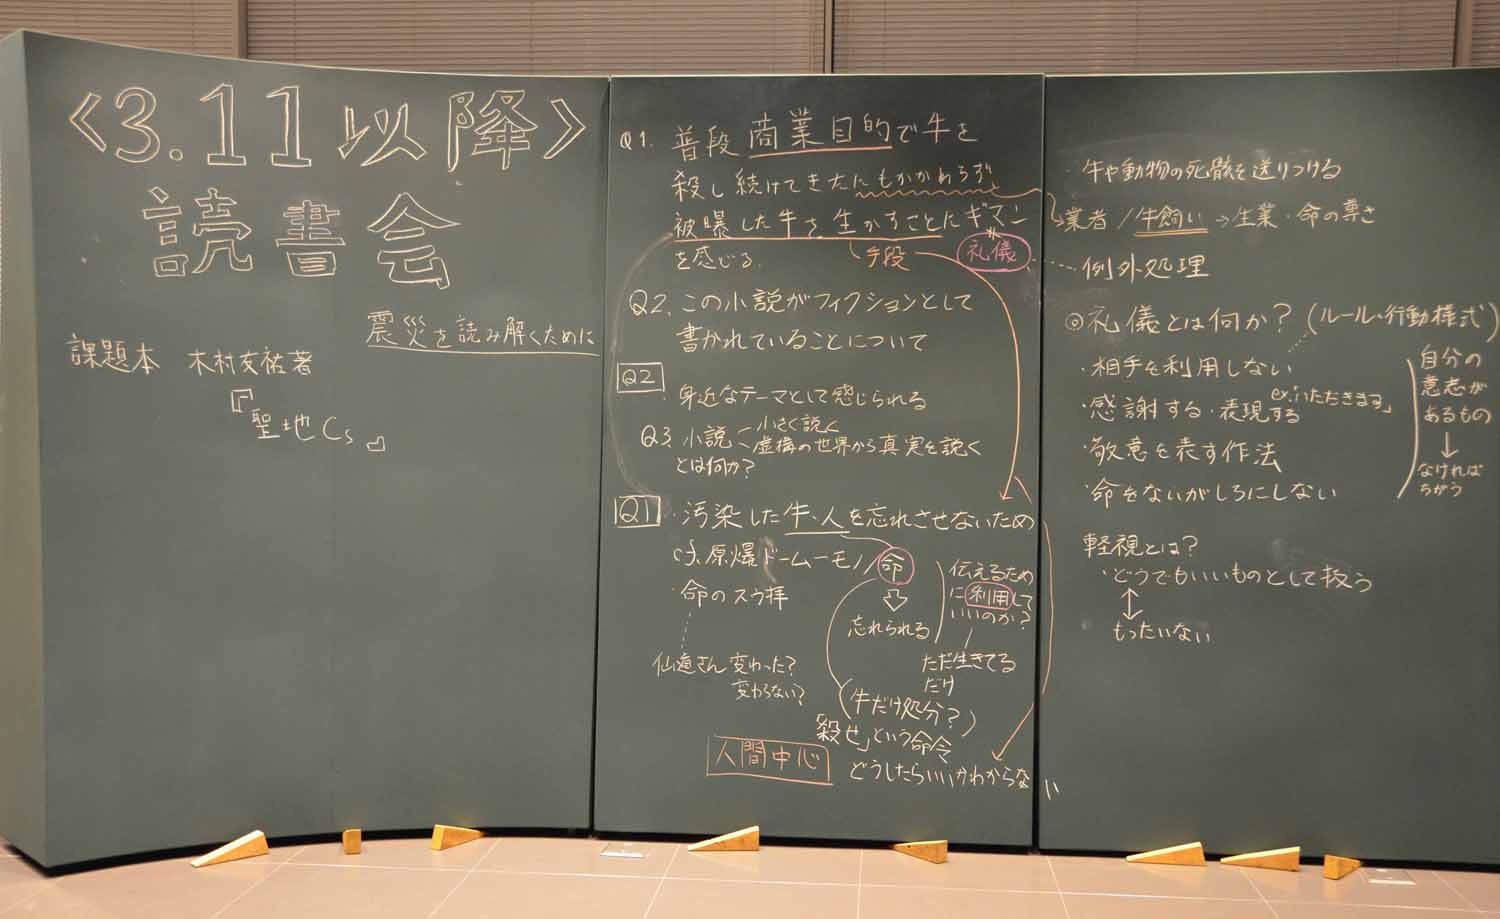 〈3.11以降〉
読書会
震災を読み解くために
課題本 木村友祐著
『聖地Cs』
Q1. 普段商業目的で牛を
殺し続けてきたにもかかわらず
被曝した牛を生かすことにギマン
を感じる。
手段
礼儀
Q2. この小説がフィクションとして
書かれていることについて
Q2
・身近なテーマとして感じられる
Q3. 小説
小さく説く
虚構の世界から真実を説く
とは何か?
Q1
・汚染した牛、人を忘れさせないため
cf. 原爆ドームーモノ/命
忘れられる
伝えるため
に利用して
いいのか?
ただ生きてる
だけ
・命のスウ拝
仙道さん変わった?
変わらない?
(牛だけ処分?)
「殺せ」という命令
どうしたらいいかわからない
人間中心
・牛や動物の死骸を送りつける
業者/牛飼い→生業・命の尊さ
例外処理
◎礼儀とは何か? (ルール・行動様式)
・相手を利用しない
・感謝する・表現する
ex.「いただきます」
・敬意を表す作法
・命をないがしろにしない
自分の
意志が
あるもの
↓
なければ
ちがう
軽視とは?
・どうでもいいものとして扱う
↕
もったいない